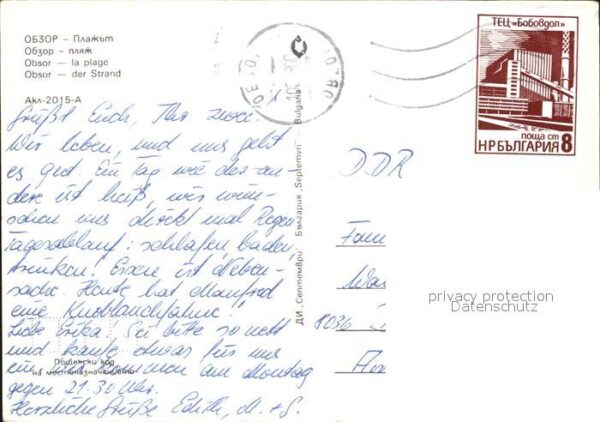 ОБЗОР — Плажът
Обзор — пляж
Obsor — la plage
Obsor — der Strand
Акл-2015-А
ТЕЦ „Бобовдол“
поща ст
НР БЪЛГАРИЯ 8
Grüßt Euch, Ihr zwei!
Wir leben, und uns geht
es gut. Ein Tag wie der an-
dere ist heiß, wir wün-
schen uns direkt mal Regen
Tagesablauf: schlafen, baden,
trinken! Essen ist Neben-
sache. Heute hat Manfred
eine Knoblauchfahne!
Liebe Erika! Sei bitte so nett
und kaufe etwas für uns
ein, wir kommen am Montag
gegen 21.30 Uhr.
Herzliche Grüße Edith, M. + S.
Пощенски код
на местоназначението
ДИ „Септември“ България „Septemvri“ Bulgaria
DDR
Fam
1036
privacy protection
Datenschutz